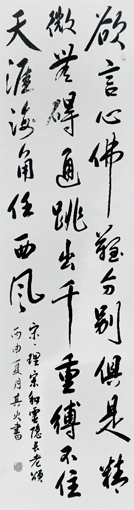 欲言心佛难分别俱是精
微无碍通跳出千重缚不住
天涯海角任西风
宋理宗和灵隐长老颂
丙申夏月其火書